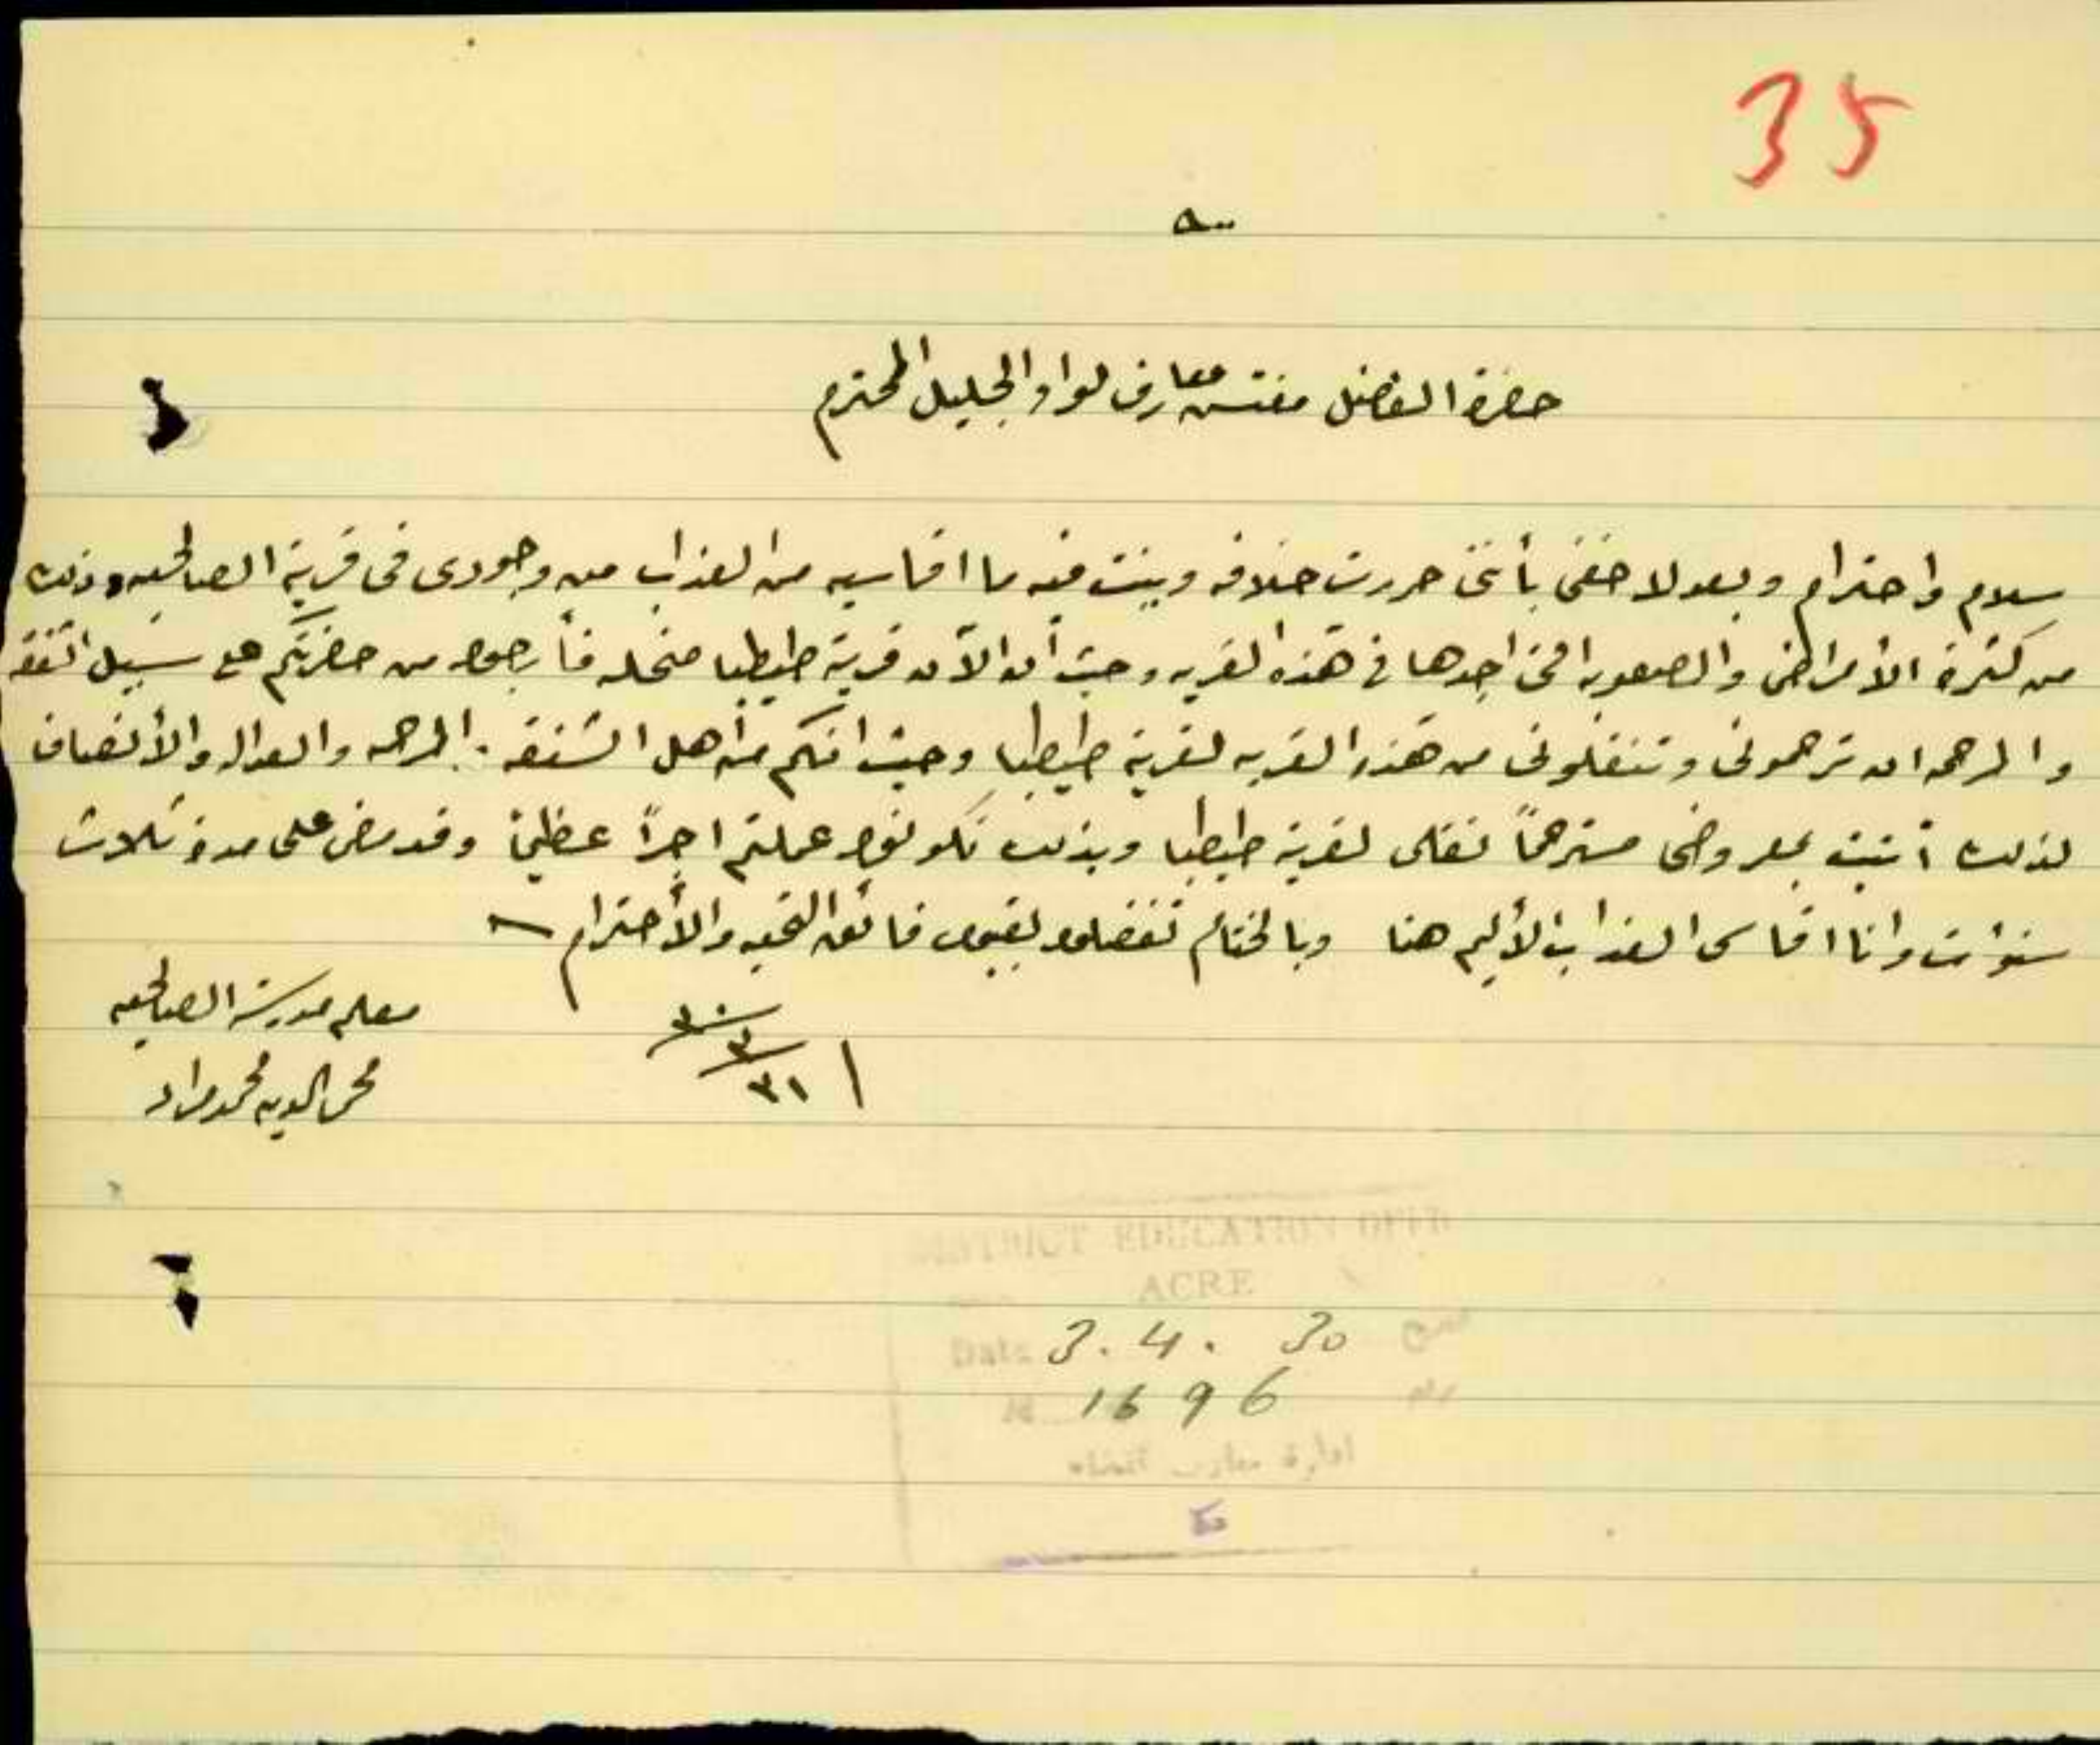 35
حضرة الفاضل مفتش معارف لواء الجليل المحترم
سلام واحترام وبعد لا خفى بأنني حررت خلافه وبينت فيه ما اقاسيه من العذاب من وجودى فى قرية الصالحيه وذلك
من كثرة الأمراض والصعوبه التي اجدها في هذه القريه وحيث أن الآن قرية طيطبا منحله فأرجو من حضرتكم على سبيل الشفقه
والمرحمه ان ترحمونى وتنقلونى من هذه القريه لقرية طيطبا وحيث انكم من أهل الشفقه والمرحمه والعداله والأنصاف
لذلك أتيت بمعروضى مسترحماً نقلى لقرية طيطبا وبذلك تكونون عملتم اجراً عظيماً وقد مضى على مدة ثلاث
سنوات وانا اقاسى العذاب الأليم هنا وبالختام تفضلوا بقبول فائق التحيه والأحترام
معلم مدرسة الصالحيه
محى الدين محمد مراد
٣١/٣/٣٠
DISTRICT EDUCATION OFFICE
ACRE
Date 3.4.30
No 1696
ادارة معارف قضاء
عكا